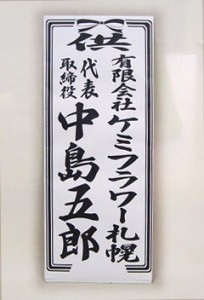 供
有限会社ケミフラワー札幌
代表
取締役
中島五郎